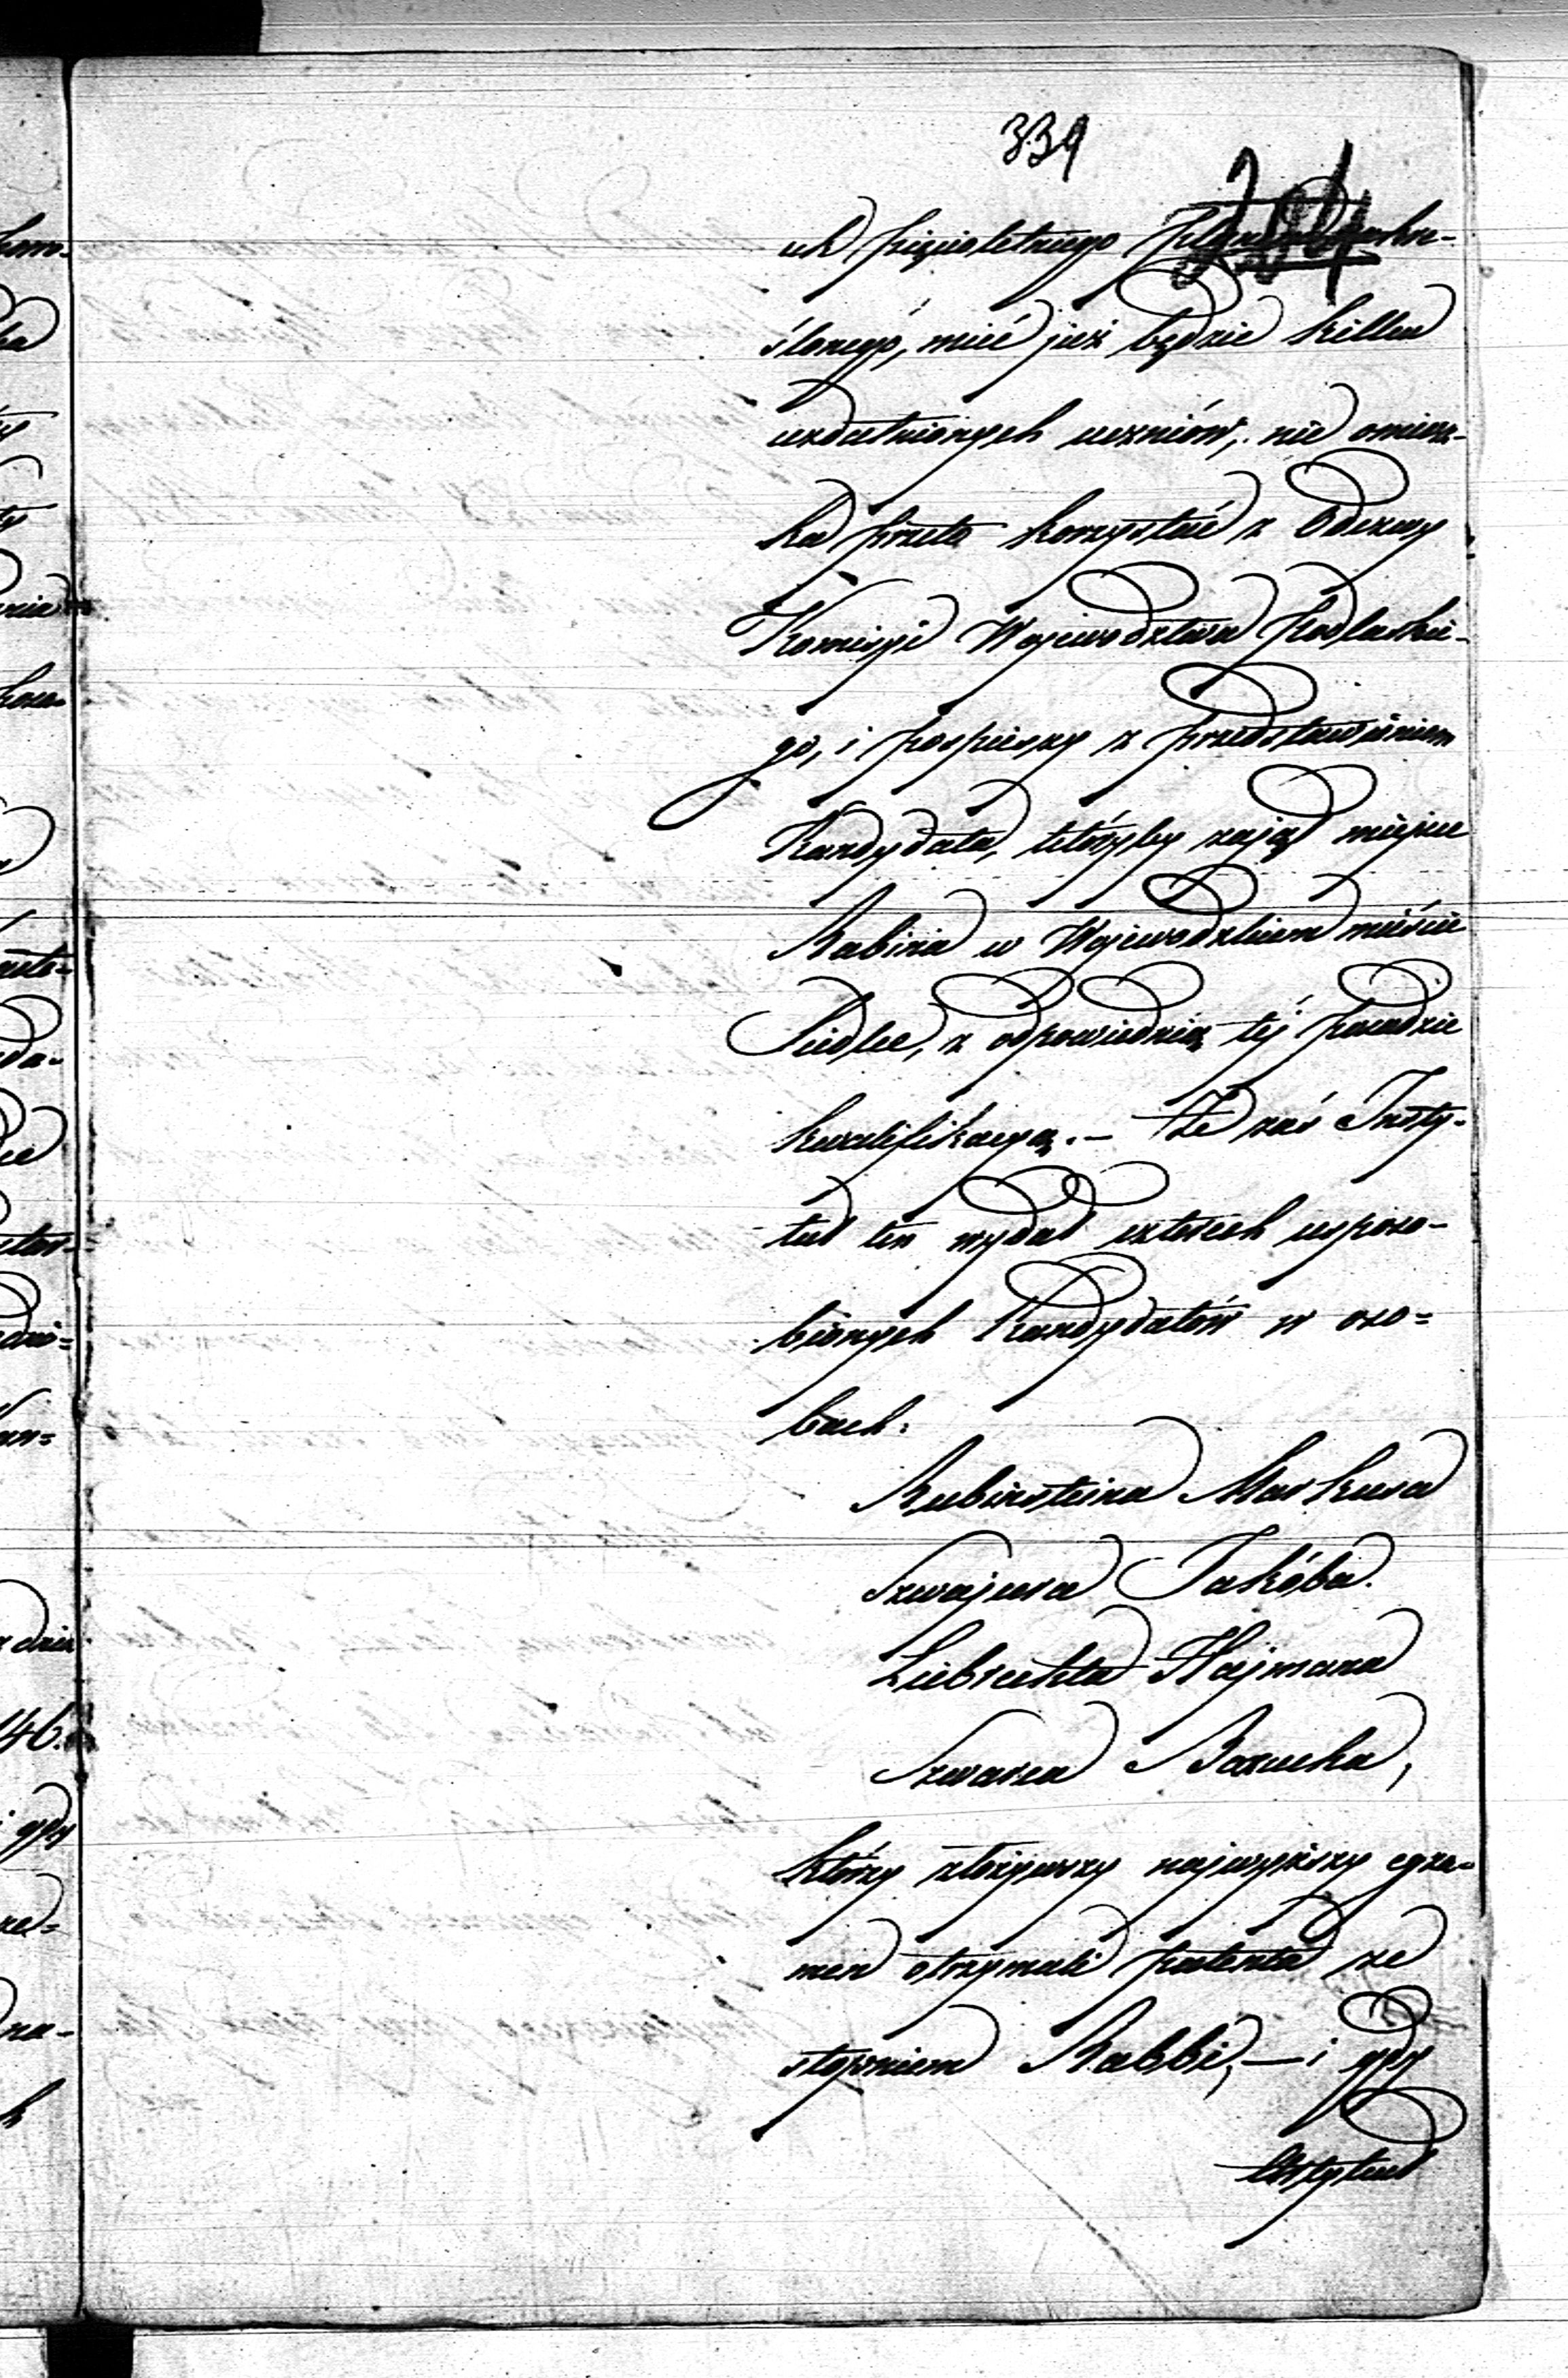 339
uk pięcioletniego
ślonego, mieć już będzie kilku
uzdatnionych uczniów; nie omiesz-
ka przeto korzystać z Odezwy
Komisyi Województwa Podlaskie-
go, i pospieszy z przedstawieniem
Kandydata, któryby zajął miejsce
Rabina w Wojewódzkiem mieście
Siedlce, z odpowiednią téj posadzie
kwalifikacyą. — Że zaś Insty-
tut ten wydał czterech usposo-
bionych Kandydatów w oso=
bach:
Rubinsteina Markusa
Szwajcera Jakóba.
Liebrechta Hajmana
Szwarca Barucha,
którzy złożywszy najwyższy egza-
men otrzymali patenta ze
stopniem Rabbi, — i gdy
Instytut